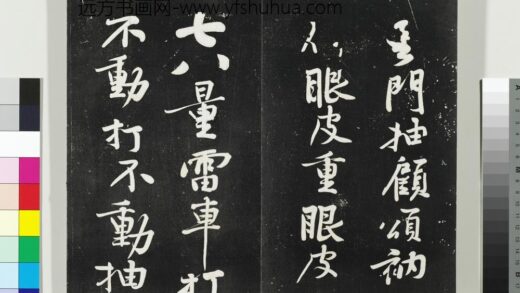 远方书画网-www.yfshuhua.com
門抽顧頌衲
眼皮重眼皮
七八量雷車打
不動打不動抽